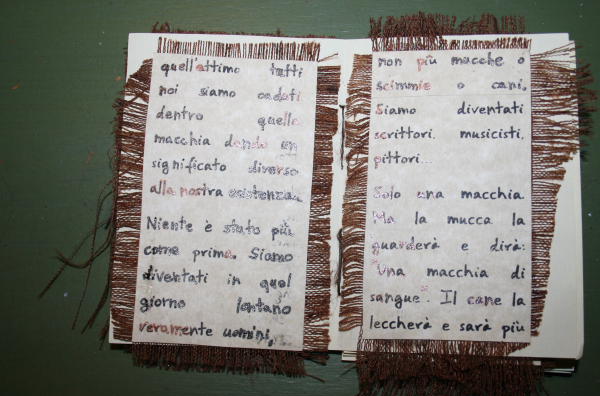 quell'attimo tutti
noi siamo caduti
dentro quella
macchia dando un
significato diverso
alla nostra esistenza.
Niente è stato più
come prima. Siamo
diventati in quel
giorno lontano
veramente uomini,
non più macche o
scimmie o cani.
Siamo diventati
scrittori, musicisti,
pittori...
Solo una macchia.
Ma la mucca la
guarderà e dirà:
"Una macchia di
sangue". Il cane la
leccherà e sarà più